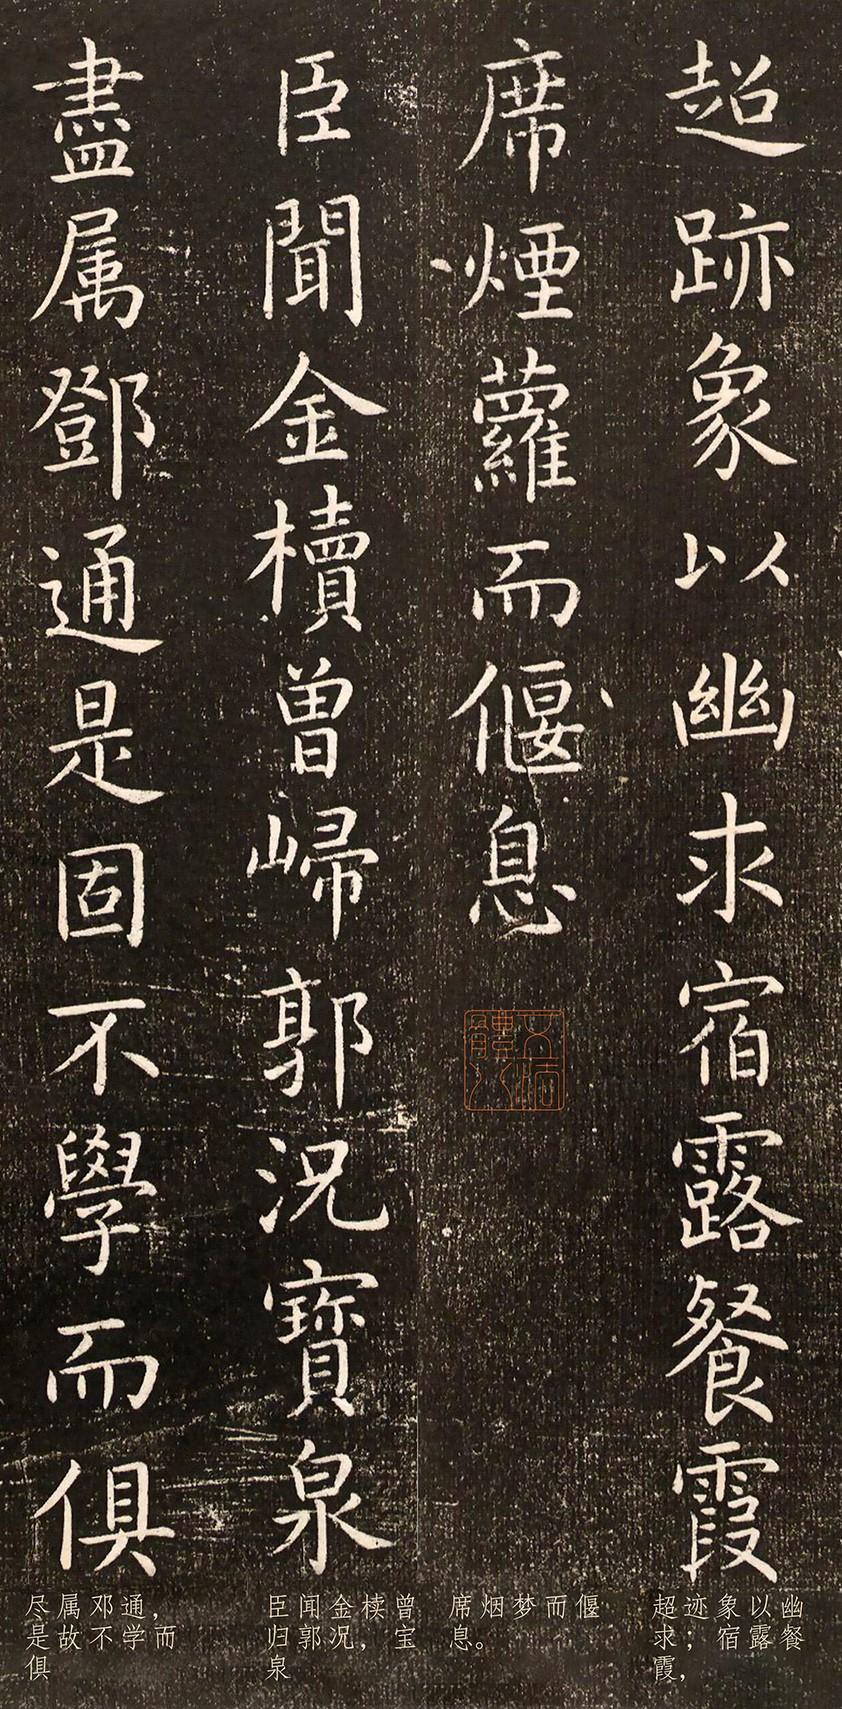 超跡象以幽求宿露餐霞
席煙蘿而偃息
臣聞金櫝曾㱕郭况寶泉
盡属鄧通是固不學而俱
超迹象以幽
求；宿露餐
霞，
席烟梦而偃
息。
臣闻金椟曾
归郭况，宝
泉
尽属邓通，
是故不学而
俱